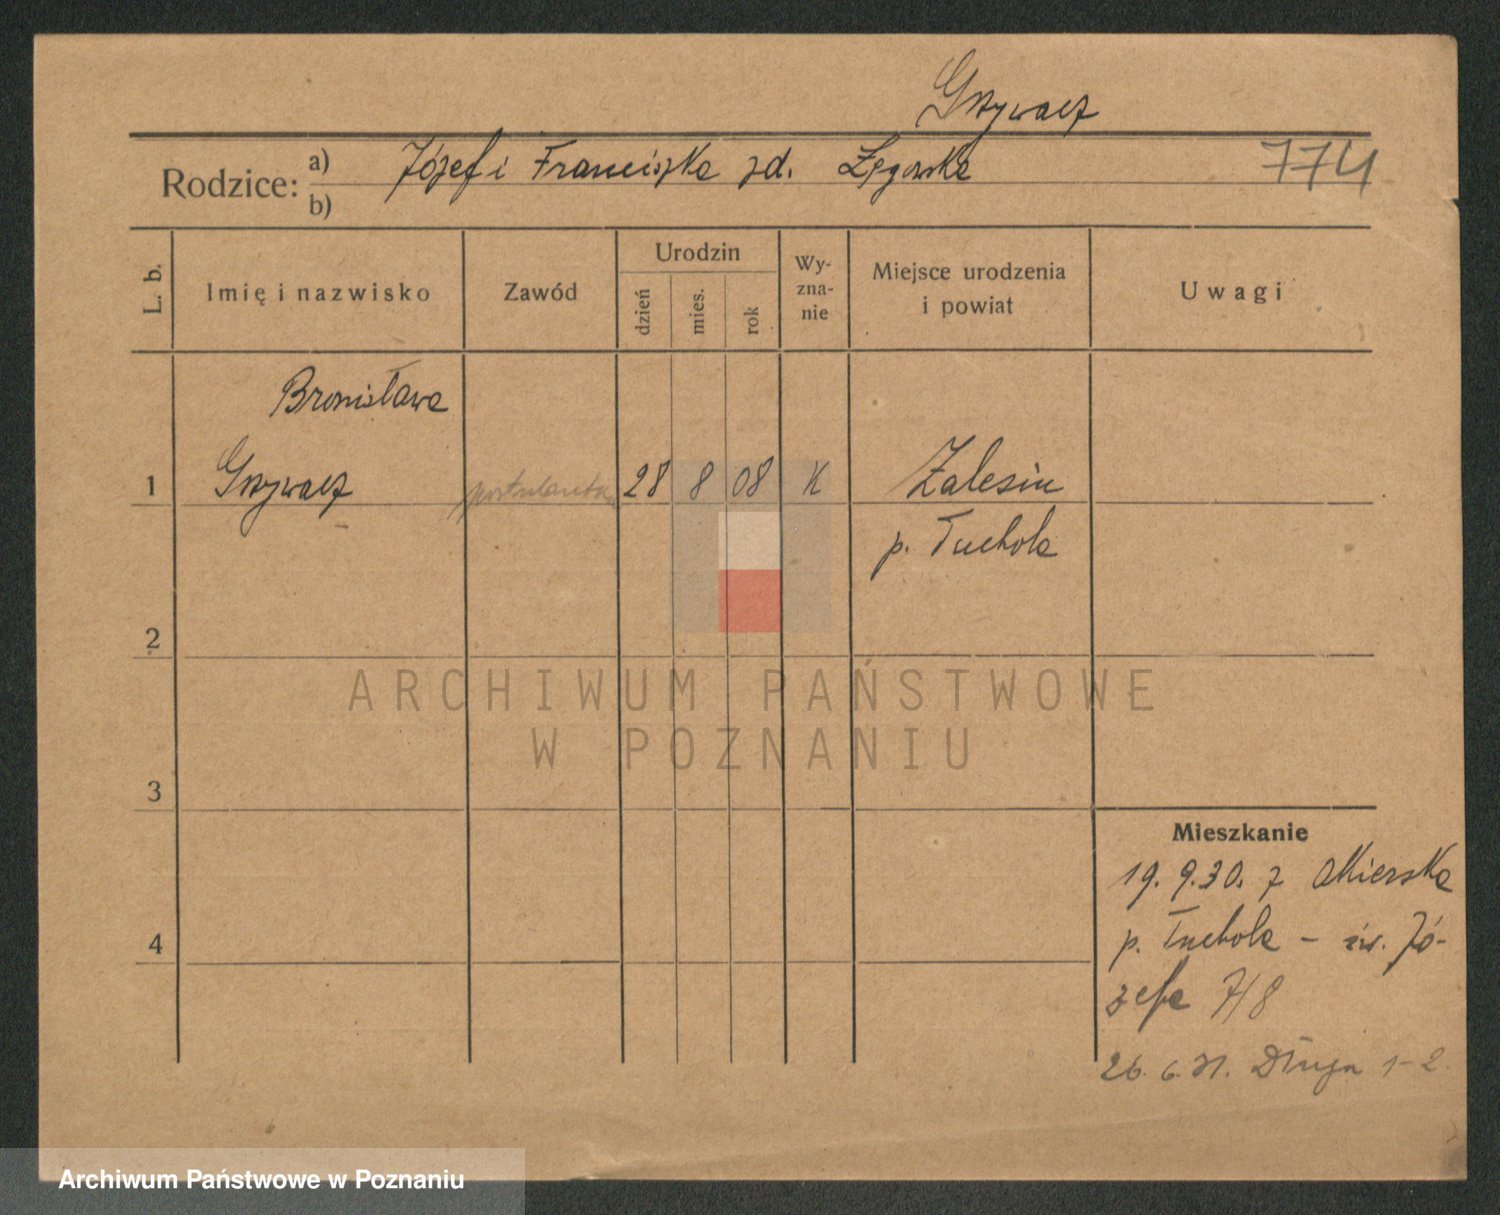 Grzywacz
Rodzice: a) Józef i Franciszka zd. Łęgowska 774
b)
L. b. Imię i nazwisko Zawód Urodzin dzień mies. rok Wy-zna-nie Miejsce urodzenia i powiat Uwagi
Bronisława
1 Grzywacz postulantka 28 8 08 K Zalesiu
p. Tuchola
2
ARCHIWUM PAŃSTWOWE
W POZNANIU
3
Mieszkanie
19. 9. 30. z
4 p. Tuchola - św. Jó-
zefa 7/8
26. 6. 31. Długa 1-2.
Archiwum Państwowe w Poznaniu